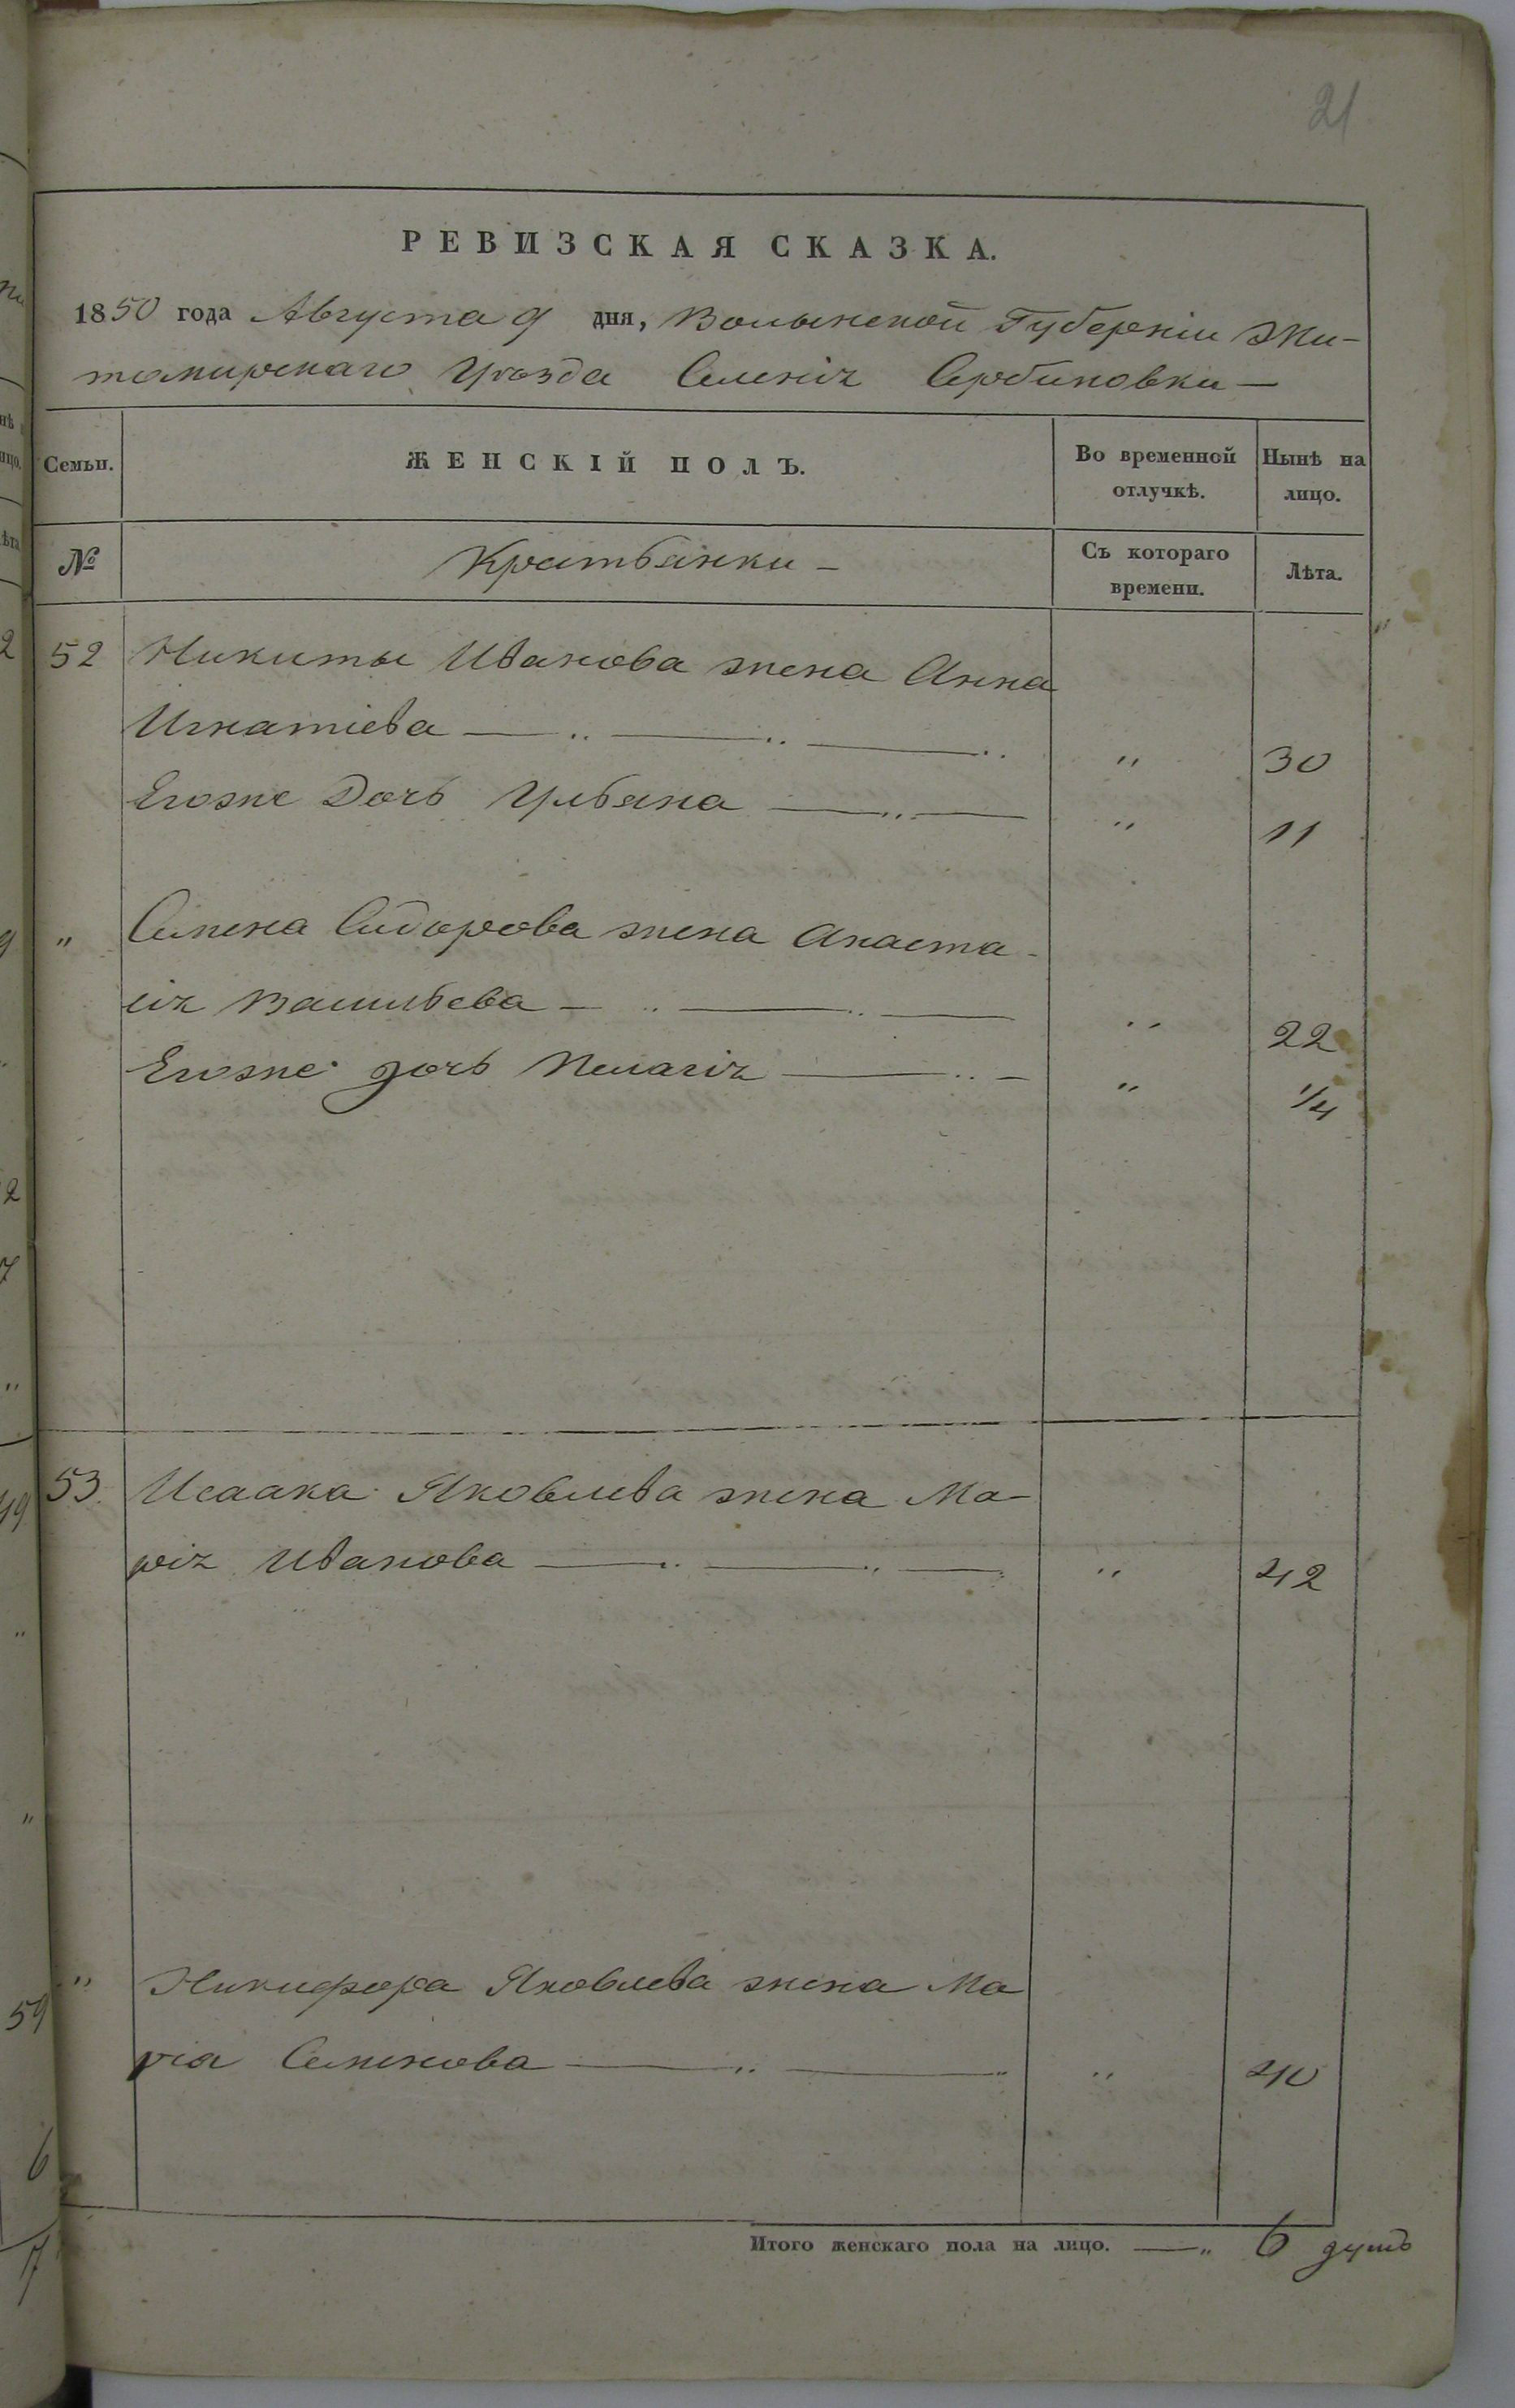 21
РЕВИЗСКАЯ СКАЗКА.
1850 года Августа 9 дня, Волынской Губерніи Жи-
томирскаго Уѣзда Селенія Сербиновки —
Семьи. ЖЕНСКІЙ ПОЛЪ. Во временной отлучкѣ. Нынѣ на лицо.
№ Крестьянки – Съ котораго времени. Лѣта.
52 Никиты Иванова жена Анна
Игнатіева — „ — „ — „ „ 30
Егоже Дочь Ульяна — „ — „ 11
„ Семена Сидорова жена Анаста-
сія Васильева — „ — „ — „ 22
Егоже дочь Пелагія — „ — „ 1/4
53 Исаака Яковлева жена Ма-
рія Иванова — „ — „ — „ 42
„ Никифора Яковлева жена Ма
рія Семенова — „ — „ „ 40
Итого женскаго пола на лицо. — „ 6 душъ